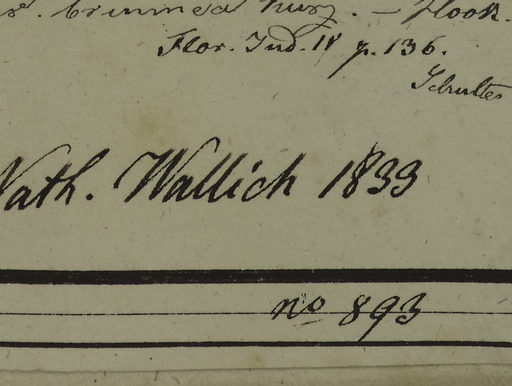 Kurz. — Hook.
Flor. Ind. II p. 136.
Schultes
Nath. Wallich 1833
no 893